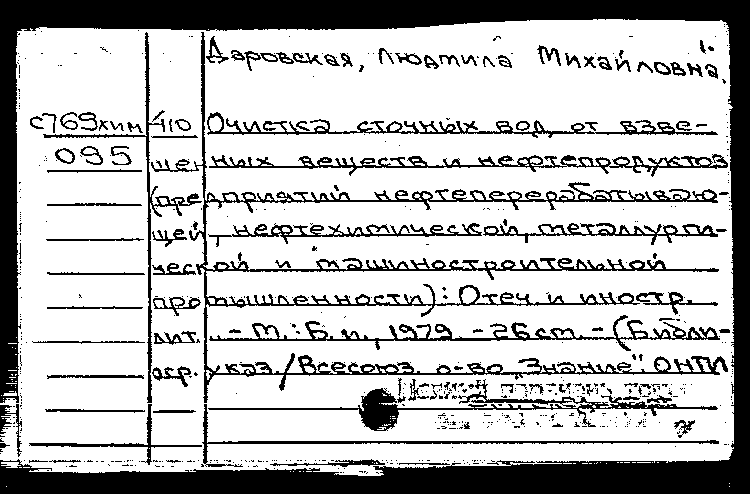 1.
Даровская, Людмила Михайловна.
с769хим 410 Очистка сточных вод от взве-
095 шенных веществ и нефтепродуктов
(предприятий нефтеперерабатываю-
щей, нефтехимической, металлурги-
ческой и машиностроительной
промышленности): Отеч. и иностр.
лит. .- М.: Б. и., 1979. - 26 ст. - (Библи-
огр. указ. / Всесоюз. о-во „Знание". ОНТИ